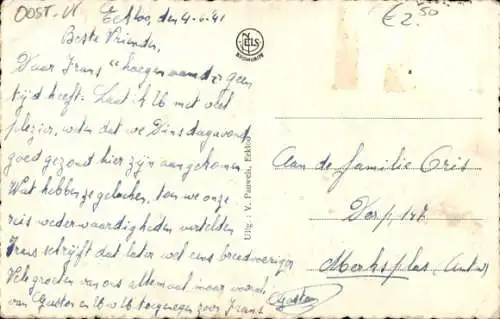 OOST-V.
€ 2.50
Eekloo, den 4-6-41
Beste Vrienden,
Daar Frans geen
tijd heeft. Laat ik U met veel
plezier, weten dat we Dinsdagavond
goed gezond hier zijn aangekomen
Wat hebben ze gelachen, toen we onze
reis wederwaardigheden vertelden
Frans schrijft dat later wel eens breedvoeriger
Vele groeten van ons allemaal maar vooral
van Gaston en toegenegen zoon Frans
Gaston
NELS
Uitg.: V. Pauwels, Eekloo
Aan de familie Oris
Dorp, 147
Merksplas (Antw)